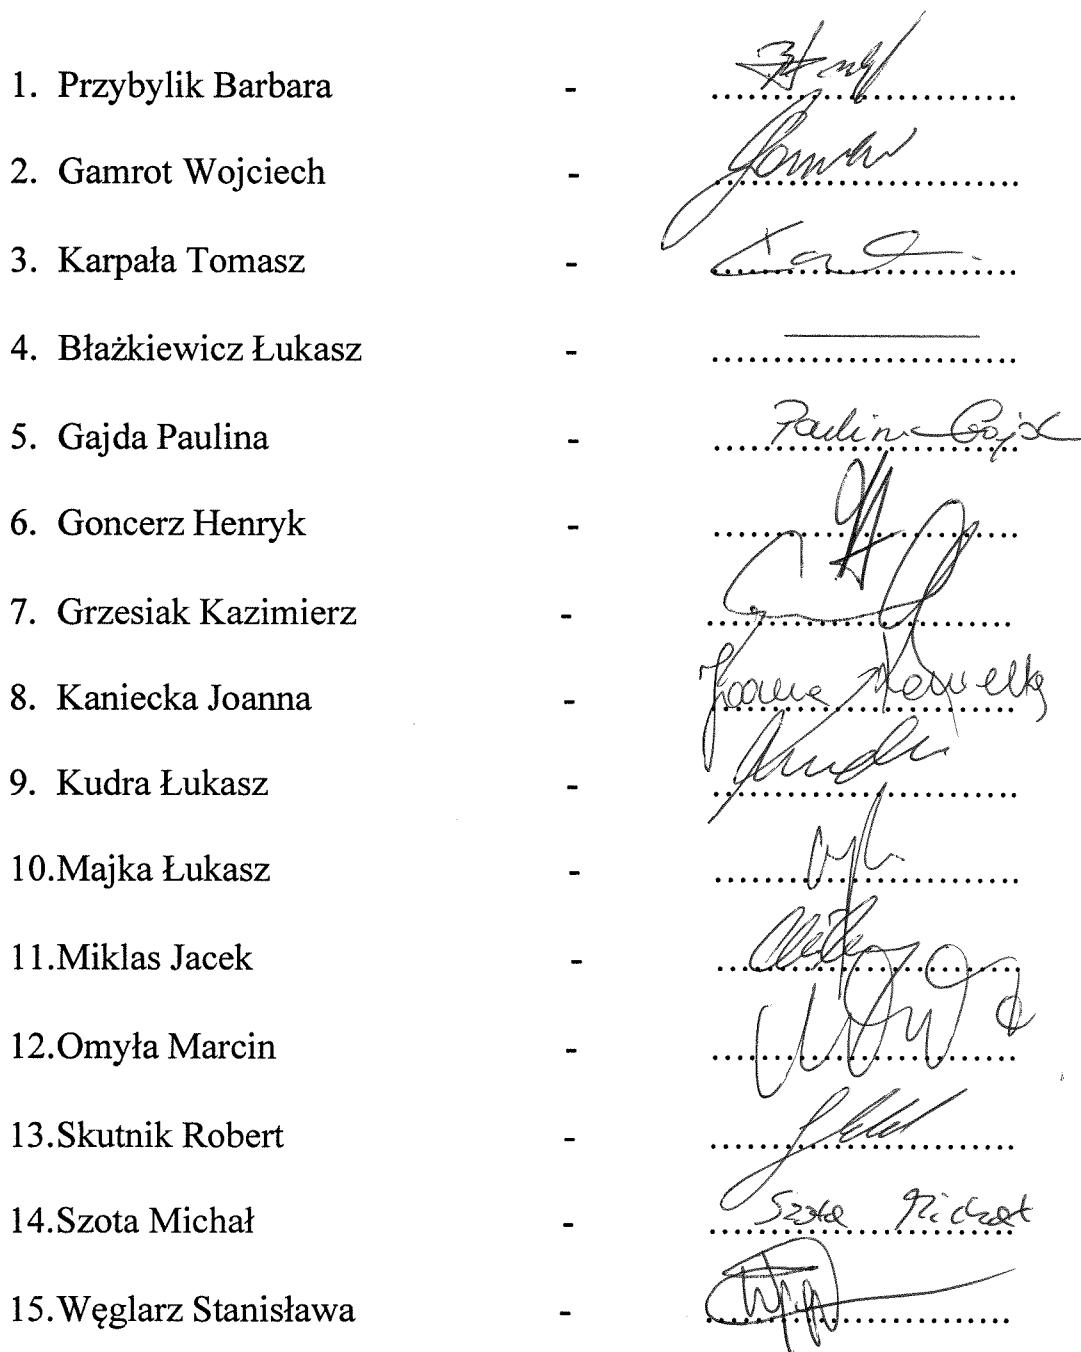 1. Przybylik Barbara - ..............................
2. Gamrot Wojciech - ..............................
3. Karpała Tomasz - ..............................
4. Błażkiewicz Łukasz - ..............................
5. Gajda Paulina - .............................. Paulina Gajda
6. Goncerz Henryk - ..............................
7. Grzesiak Kazimierz - ..............................
8. Kaniecka Joanna - .............................. Joanna
9. Kudra Łukasz - .............................. Kudra
10.Majka Łukasz - ..............................
11.Miklas Jacek - ..............................
12.Omyła Marcin - ..............................
13.Skutnik Robert - ..............................
14.Szota Michał - .............................. Szota Michał
15.Węglarz Stanisława - ..............................